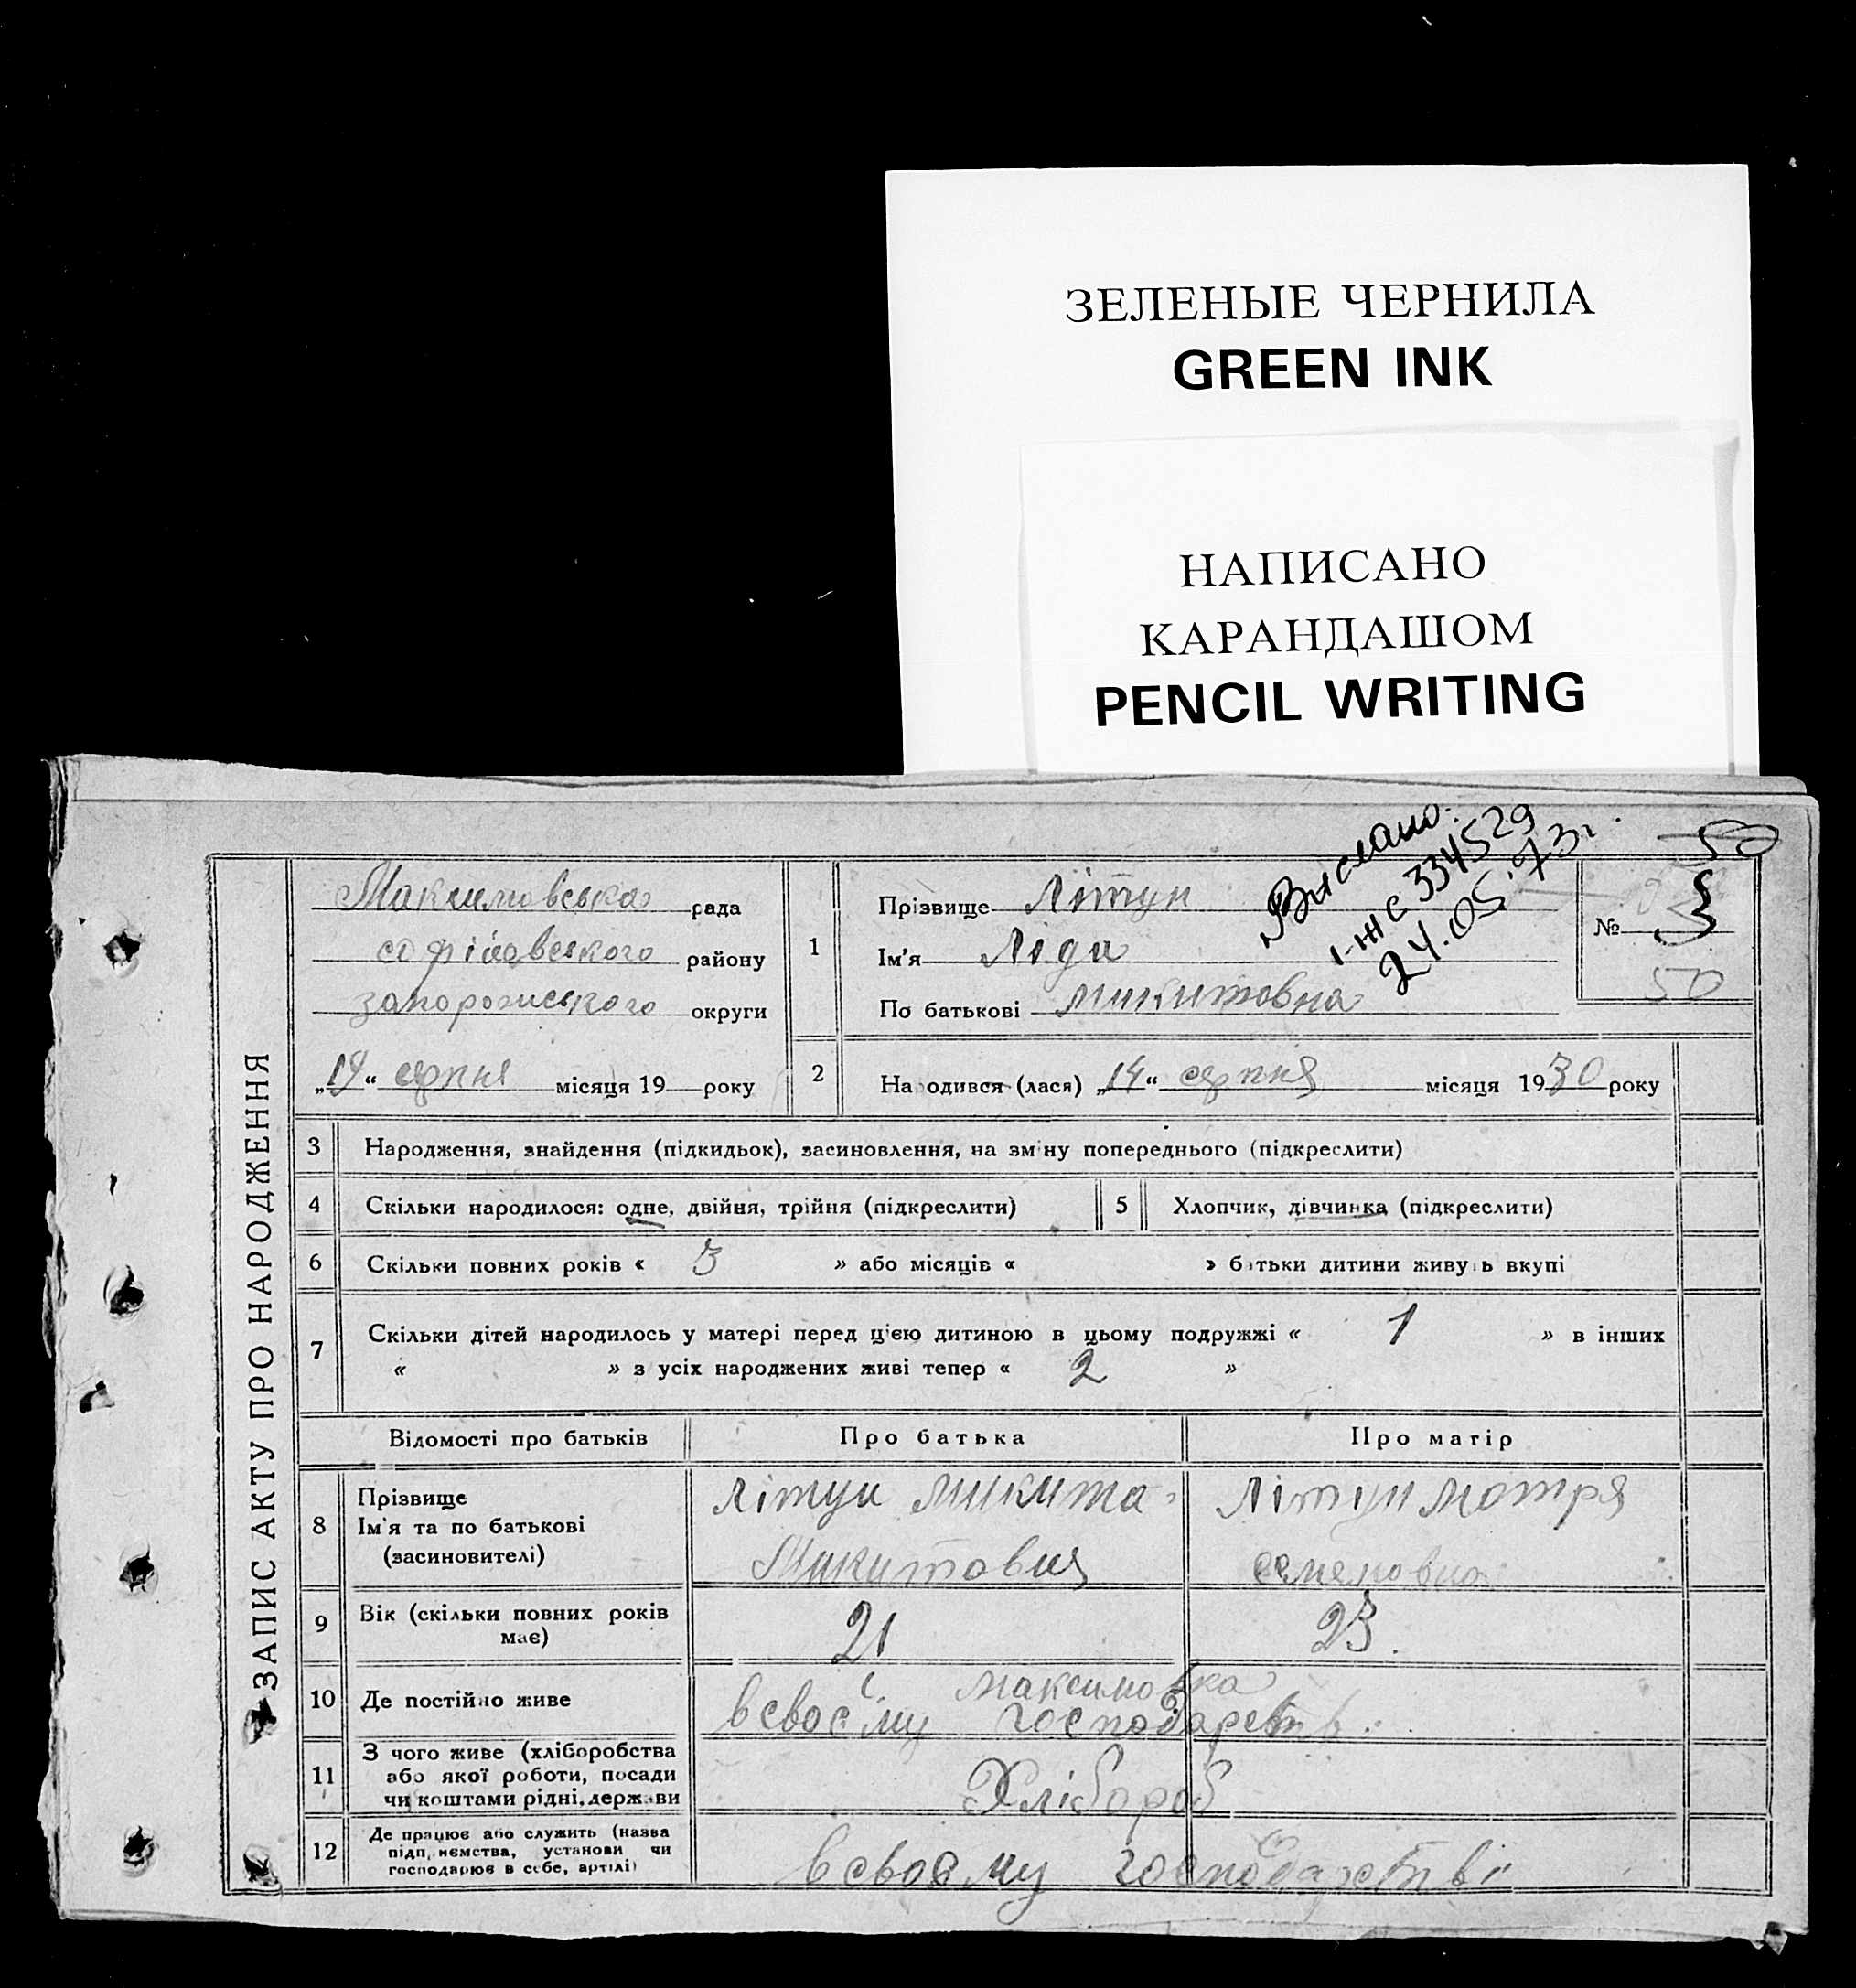 ЗЕЛЕНЫЕ ЧЕРНИЛА
GREEN INK
НАПИСАНО
КАРАНДАШОМ
PENCIL WRITING
ЗАПИС АКТУ ПРО НАРОДЖЕННЯ
Максимовська рада
софіївського району
запорожського округи
„14“ серпня місяця 19 року
Вислано:
І-ЖС 334529
24.05.73г.
1 Прізвище Літун
Ім'я Ліда
По батькові микитовна
50
№ 3
50
2 Народився (лася) „14“ серпня місяця 1930 року
3 Народження, знайдення (підкидьок), засиновлення, на зміну попереднього (підкреслити)
4 Скільки народилося: одне, двійня, трійня (підкреслити) 5 Хлопчик, дівчинка (підкреслити)
6 Скільки повних років « 3 » або місяців « » батьки дитини живуть вкупі
7 Скільки дітей народилось у матері перед цією дитиною в цьому подружжі « 1 » в інших
« » з усіх народжених живі тепер « 2 »
Відомості про батьків Про батька Про матір
8 Прізвище
Ім'я та по батькові
(засиновителі)
Літун микита
Микитович
Літун мотря
семеновна
9 Вік (скільки повних років має) 21 23.
10 Де постійно живе
Максимовка
в своєму господарстві
11 З чого живе (хліборобства
або якої роботи, посади
чи коштами рідні, держави
Хлібороб
12 Де працює або служить (назва
підприємства, установи чи
господарює в себе, артілі)
в своєму господарстві